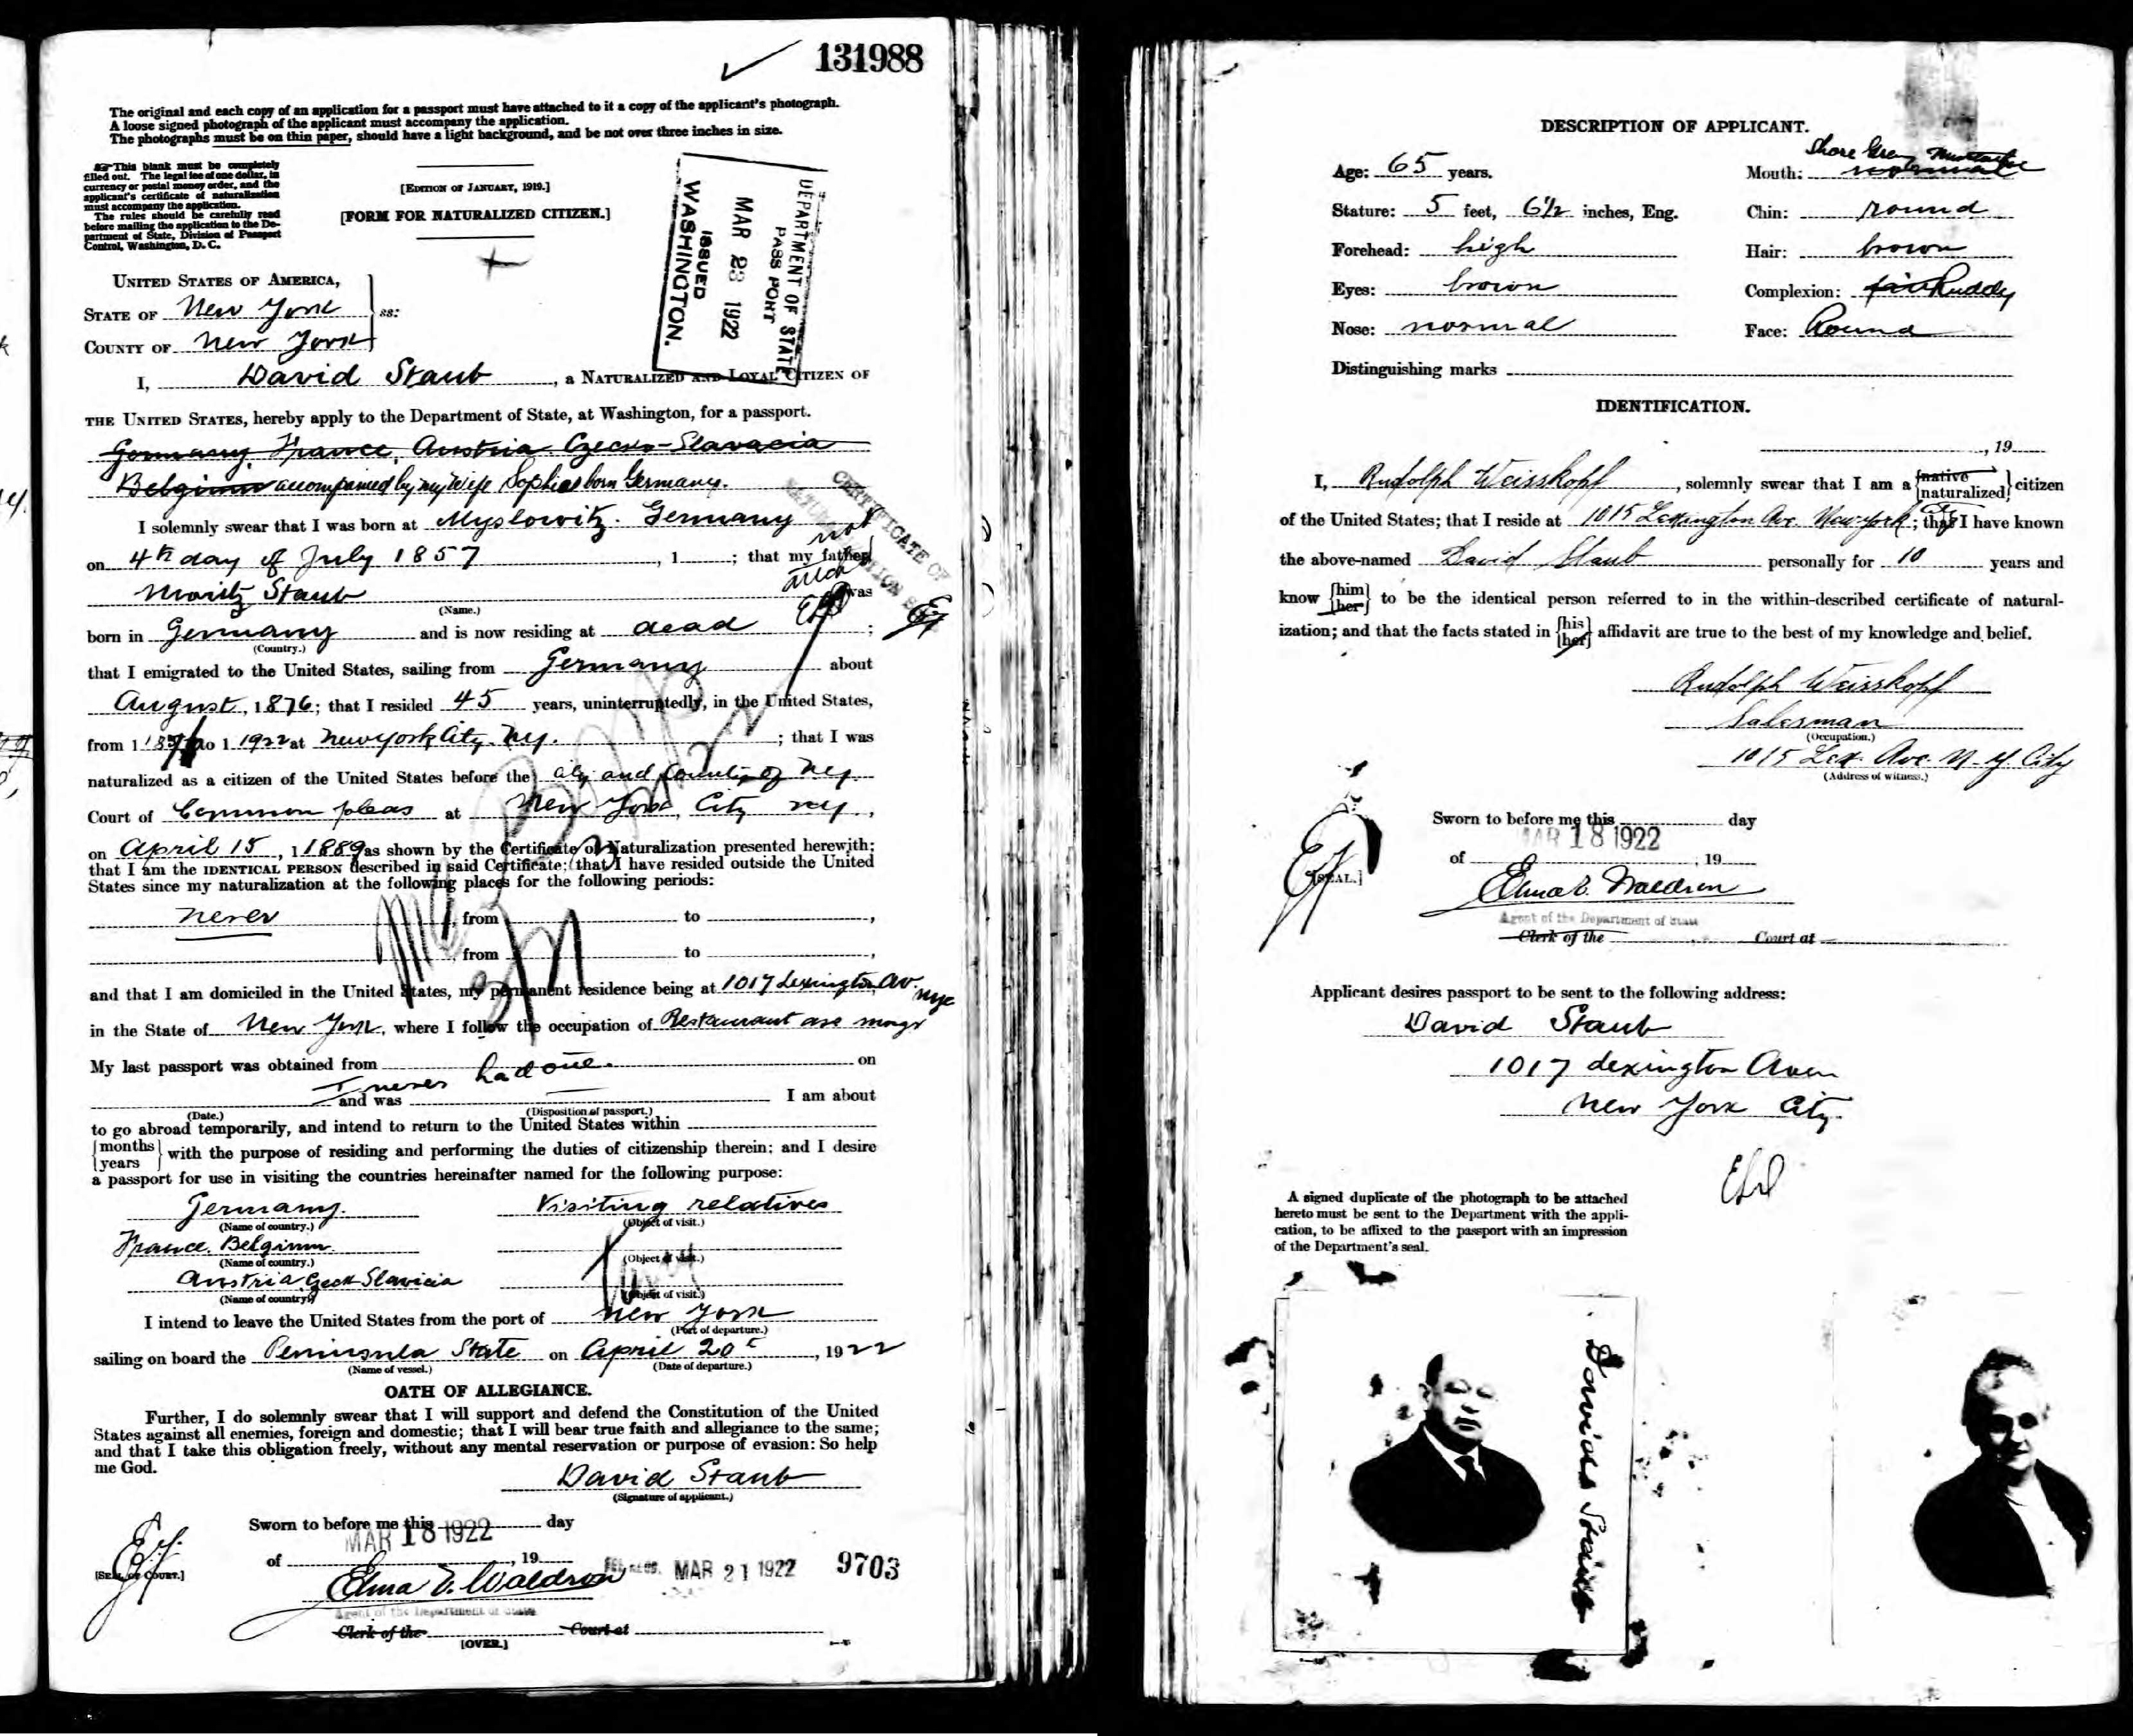 131988
The original and each copy of an application for a passport must have attached to it a copy of the applicant's photograph.
A loose signed photograph of the applicant must accompany the application.
The photographs must be on thin paper, should have a light background, and be not over three inches in size.
This blank must be completely
filled out. The legal fee of one dollar, in
currency or postal money order, and the
applicant's certificate of naturalization
must accompany the application.
The rules should be carefully read
before mailing the application to the De-
partment of State, Division of Passport
Control, Washington, D. C.
[EDITION OF JANUARY, 1919.]
[FORM FOR NATURALIZED CITIZEN.]
DEPARTMENT OF STATE
PASSPORT
MAR 23 1922
ISSUED
WASHINGTON.
UNITED STATES OF AMERICA,
STATE OF New York
ss:
COUNTY OF New York
I, David Staub, a NATURALIZED AND LOYAL CITIZEN OF
THE UNITED STATES, hereby apply to the Department of State, at Washington, for a passport.
Germany, France, Austria Czecko-Slavacia
Belgium accompanied by my wife Sophie born Germany.
CERTIFICATE OF
I solemnly swear that I was born at Myslowitz. Germany
on 4th day of July 1857, 1; that my father
Moritz Staub was
(Name.)
born in Germany and is now residing at dead;
(Country.)
that I emigrated to the United States, sailing from Germany about
August, 1876; that I resided 45 years, uninterruptedly, in the United States,
from 1876 to 1 1922 at New York City. Ny.; that I was
naturalized as a citizen of the United States before the City and County of Ny
Court of Common pleas at New York City Ny,
on April 15, 1 1889 as shown by the Certificate of Naturalization presented herewith;
that I am the IDENTICAL PERSON described in said Certificate; that I have resided outside the United
States since my naturalization at the following places for the following periods:
never, from to,
, from to,
and that I am domiciled in the United States, my permanent residence being at 1017 Lexington Av. nyc
in the State of New York, where I follow the occupation of Restaurant
My last passport was obtained from on
I never had one.
and was I am about
(Date.) (Disposition of passport.)
to go abroad temporarily, and intend to return to the United States within
months
years
with the purpose of residing and performing the duties of citizenship therein; and I desire
a passport for use in visiting the countries hereinafter named for the following purpose:
Germany. Visiting relatives
(Name of country.) (Object of visit.)
France. Belgium.
(Name of country.) (Object of visit.)
Austria Czeck Slavicia
(Name of country.) (Object of visit.)
I intend to leave the United States from the port of New York
(Port of departure.)
sailing on board the Peninsula State on April 20t, 1922
(Name of vessel.) (Date of departure.)
OATH OF ALLEGIANCE.
Further, I do solemnly swear that I will support and defend the Constitution of the United
States against all enemies, foreign and domestic; that I will bear true faith and allegiance to the same;
and that I take this obligation freely, without any mental reservation or purpose of evasion: So help
me God.
David Staub
(Signature of applicant.)
Sworn to before me this day
MAR 18 1922
of, 19
[SEAL OF COURT.]
Elma E. Waldron
MAR 21 1922
9703
Agent of the Department of State
Clerk of the Court at
[OVER.]
DESCRIPTION OF APPLICANT.
Age: 65 years.
Mouth: normal
Stature: 5 feet, 6 1/2 inches, Eng.
Chin: round
Forehead: high
Hair: brown
Eyes: brown
Complexion: fair Ruddy
Nose: normal
Face: Round
Distinguishing marks
IDENTIFICATION.
, 19
I, Rudolph Weisskopf, solemnly swear that I am a native naturalized citizen
of the United States; that I reside at 1015 Lexington Ave New York City; that I have known
the above-named David Staub personally for 10 years and
know him her to be the identical person referred to in the within-described certificate of natural-
ization; and that the facts stated in his her affidavit are true to the best of my knowledge and belief.
Rudolph Weisskopf
Salesman
(Occupation.)
1015 Lex. Ave. N. Y City
(Address of witness.)
Sworn to before me this day
MAR 18 1922
of, 19
[SEAL.]
Elma E. Waldron
Agent of the Department of State
Clerk of the Court at
Applicant desires passport to be sent to the following address:
David Staub
1017 Lexington Aven
New York City.
A signed duplicate of the photograph to be attached
hereto must be sent to the Department with the appli-
cation, to be affixed to the passport with an impression
of the Department's seal.
David Staub